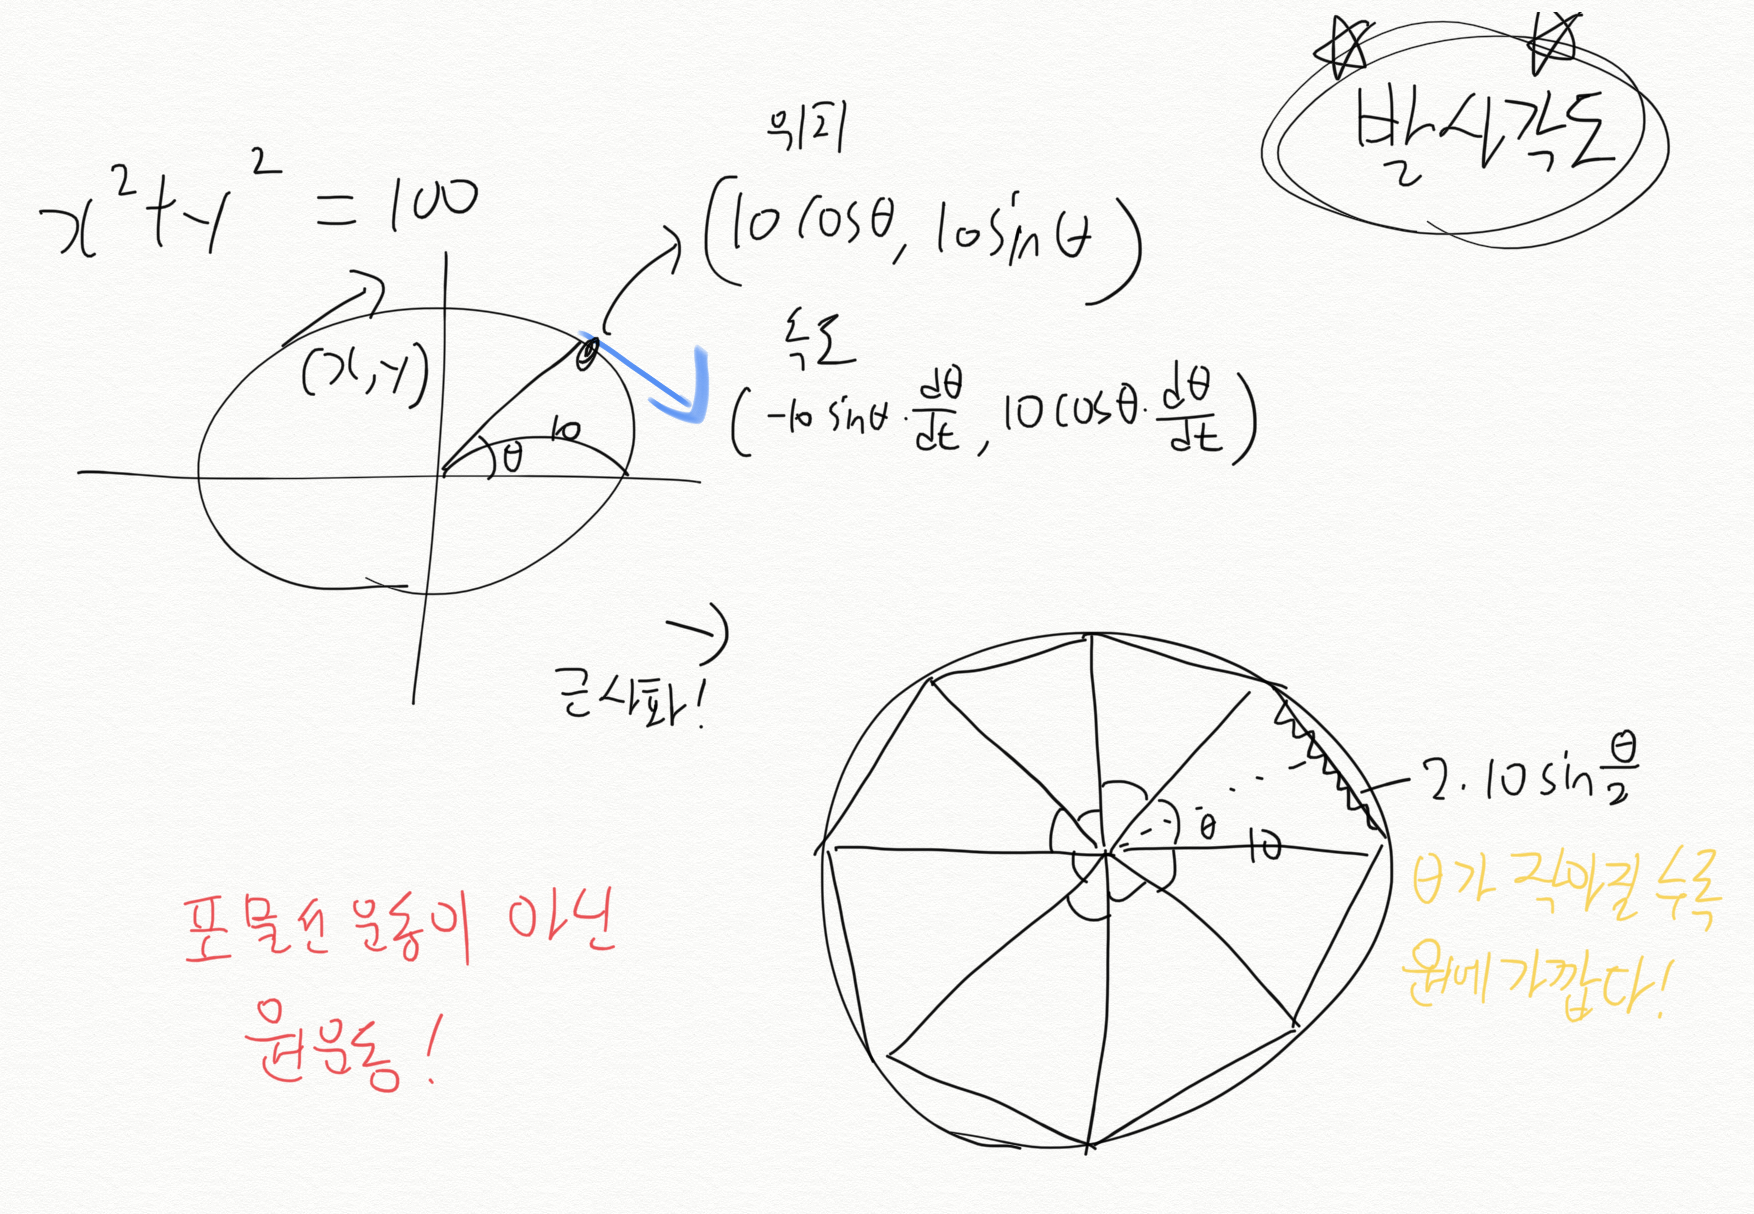 발사각도
x² + y² = 100
위치
(10 cosθ, 10 sinθ)
(x, y)
속도
(-10 sinθ · dθ/dt, 10 cosθ · dθ/dt)
10
θ
근사화!
→
2 · 10 sin θ/2
θ
10
θ가 작아질수록
원에 가깝다!
포물선 운동이 아닌
원운동!